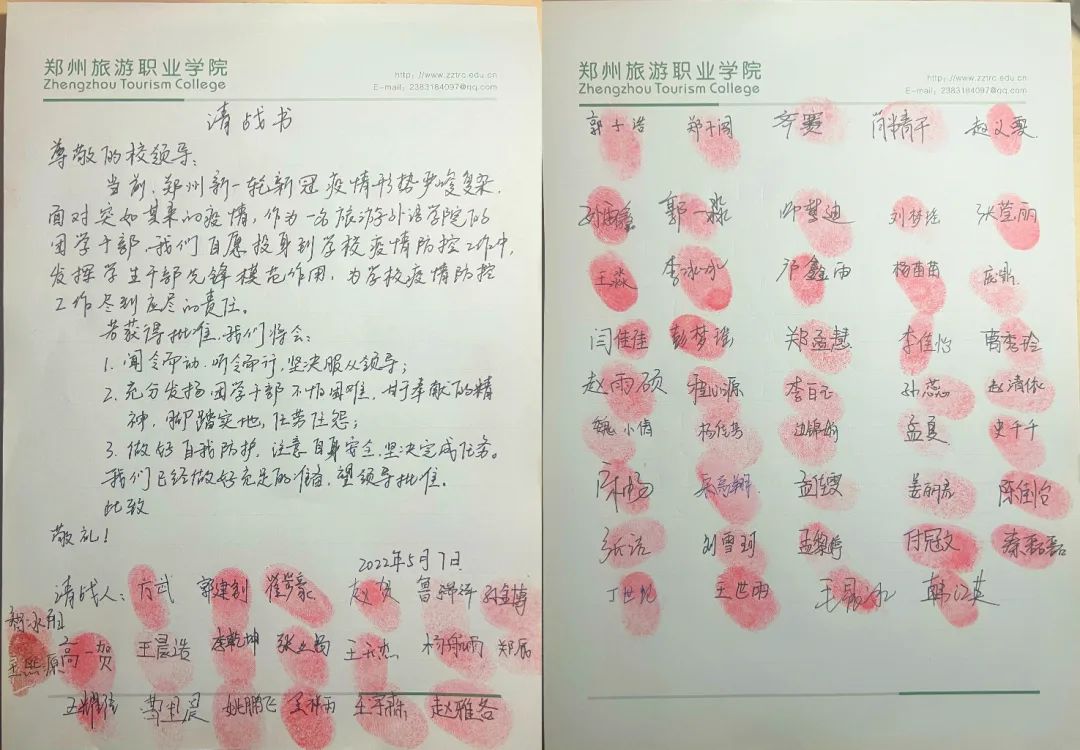 郑州旅游职业学院
Zhengzhou Tourism College
http://www.zztrc.edu.cn
E-mail: 2383184097@qq.com
请战书
尊敬的校领导:
当前,郑州新一轮新冠疫情形势严峻复杂.
面对突如其来的疫情,作为一名旅游外语学院的
团学干部,我们自愿投身到学校疫情防控工作中,
发挥学生干部先锋模范作用,为学校疫情防控
工作尽到应尽的责任。
若获得批准,我们将会:
1. 闻令而动、听令而行,坚决服从领导;
2. 充分发扬团学干部不怕困难、甘于奉献的精
神,脚踏实地,任劳任怨;
3. 做好自我防护,注意自身安全,坚决完成任务。
我们已经做好充足的准备,望领导批准。
此致
敬礼!
2022年5月7日
请战人: 方武 郭建利
高一贺 王晨浩 李乾坤 郑辰
姚鹏飞 赵雅各
郑州旅游职业学院
Zhengzhou Tourism College
http://www.zztrc.edu.cn
E-mail: 2383184097@qq.com
郭士浩 郑千阁 齐赛 肖精干 赵义雯
郭一淼 师梦迪 刘梦瑶 张萱丽
王淼 李冰冰 杨苗苗
闫佳佳 彭梦瑶 郑孟慧 李佳怡 曹秀玲
赵雨硕 程心源 孙蕊 赵清依
魏小倩 边锦娟 孟夏 史千千
陈畅 吴高翔 孟佳雯
张洁 刘雪珂 孟黎婷 付冠文 秦磊磊
丁世纪 王世雨 王晶冰 韩江英